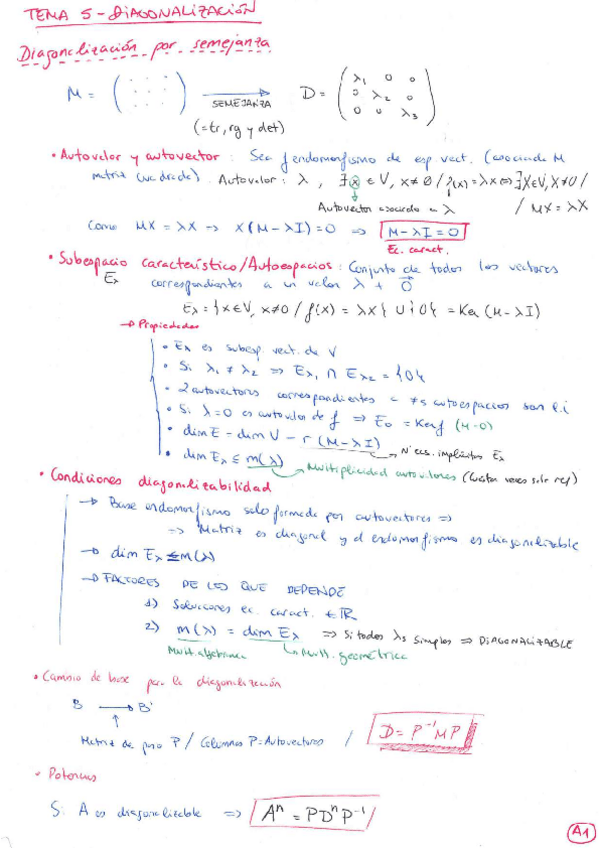 TEMA 5 - DIAGONALIZACIÓN
Diagonalización por semejanza
M = ( ) SEMEJANZA → D = ( λ₁ 0 0
0 λ₂ 0
0 0 λ₃ )
(= tr, rg y det)
• Autovalor y autovector : Sea f endomorfismo de esp. vect. (asociada M
matriz cuadrada). Autovalor: λ, ∃ x ∈ V, x ≠ 0 / f(x) = λx ⇔ ∃ X ∈ V, X ≠ 0 /
Autovector asociado a λ / MX = λX
Como MX = λX → X(M - λI) = 0 ⇒ M - λI = 0
Ec. caract.
• Subespacio característico/Autoespacios : Conjunto de todos los vectores
Eλ correspondientes a un valor λ + 0⃗
Eλ = { x ∈ V, x ≠ 0 / f(x) = λx } ∪ {0} = Ker (M - λI)
→ Propiedades
• Eλ es subesp. vect. de V
• Si λ₁ ≠ λ₂ ⇒ Eλ₁ ∩ Eλ₂ = {0}
• 2 autovectores correspondientes a ≠s autoespacios son l.i
• Si λ = 0 es autovalor de f ⇒ E₀ = Ker f (M - 0)
• dim E = dim V - r (M - λI) → Nº ecs. implícitas Eλ
• dim Eλ ≤ m(λ) → Multiplicidad autovalores (cuántas veces sale rep)
• Condiciones diagonalizabilidad
→ Base endomorfismo solo formada por autovectores ⇒
⇒ Matriz es diagonal y el endomorfismo es diagonalizable
→ dim Eλ ≤ m(λ)
→ FACTORES DE LOS QUE DEPENDE
1) Soluciones ec. caract. ∈ ℝ
2) m(λ) = dim Eλ ⇒ Si todos λs simples ⇒ DIAGONALIZABLE
Mult. algebraica → Mult. geométrica
• Cambio de base para la diagonalización
B → B'
↑
Matriz de paso P / Columnas P = Autovectores / D = P⁻¹MP
• Potencias
Si A es diagonalizable ⇒ Aⁿ = PDⁿP⁻¹
A1